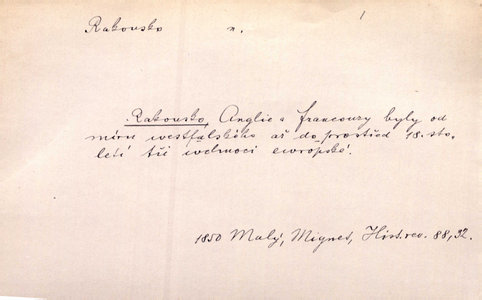 Rakousko n. 1
Rakousko, Anglie a Francouzy byly od
míru westfalského až do prostřed 18. sto-
letí tři welmoci ewropské.
1850 Malý, Mignet, Hist. rev. 88, 32.